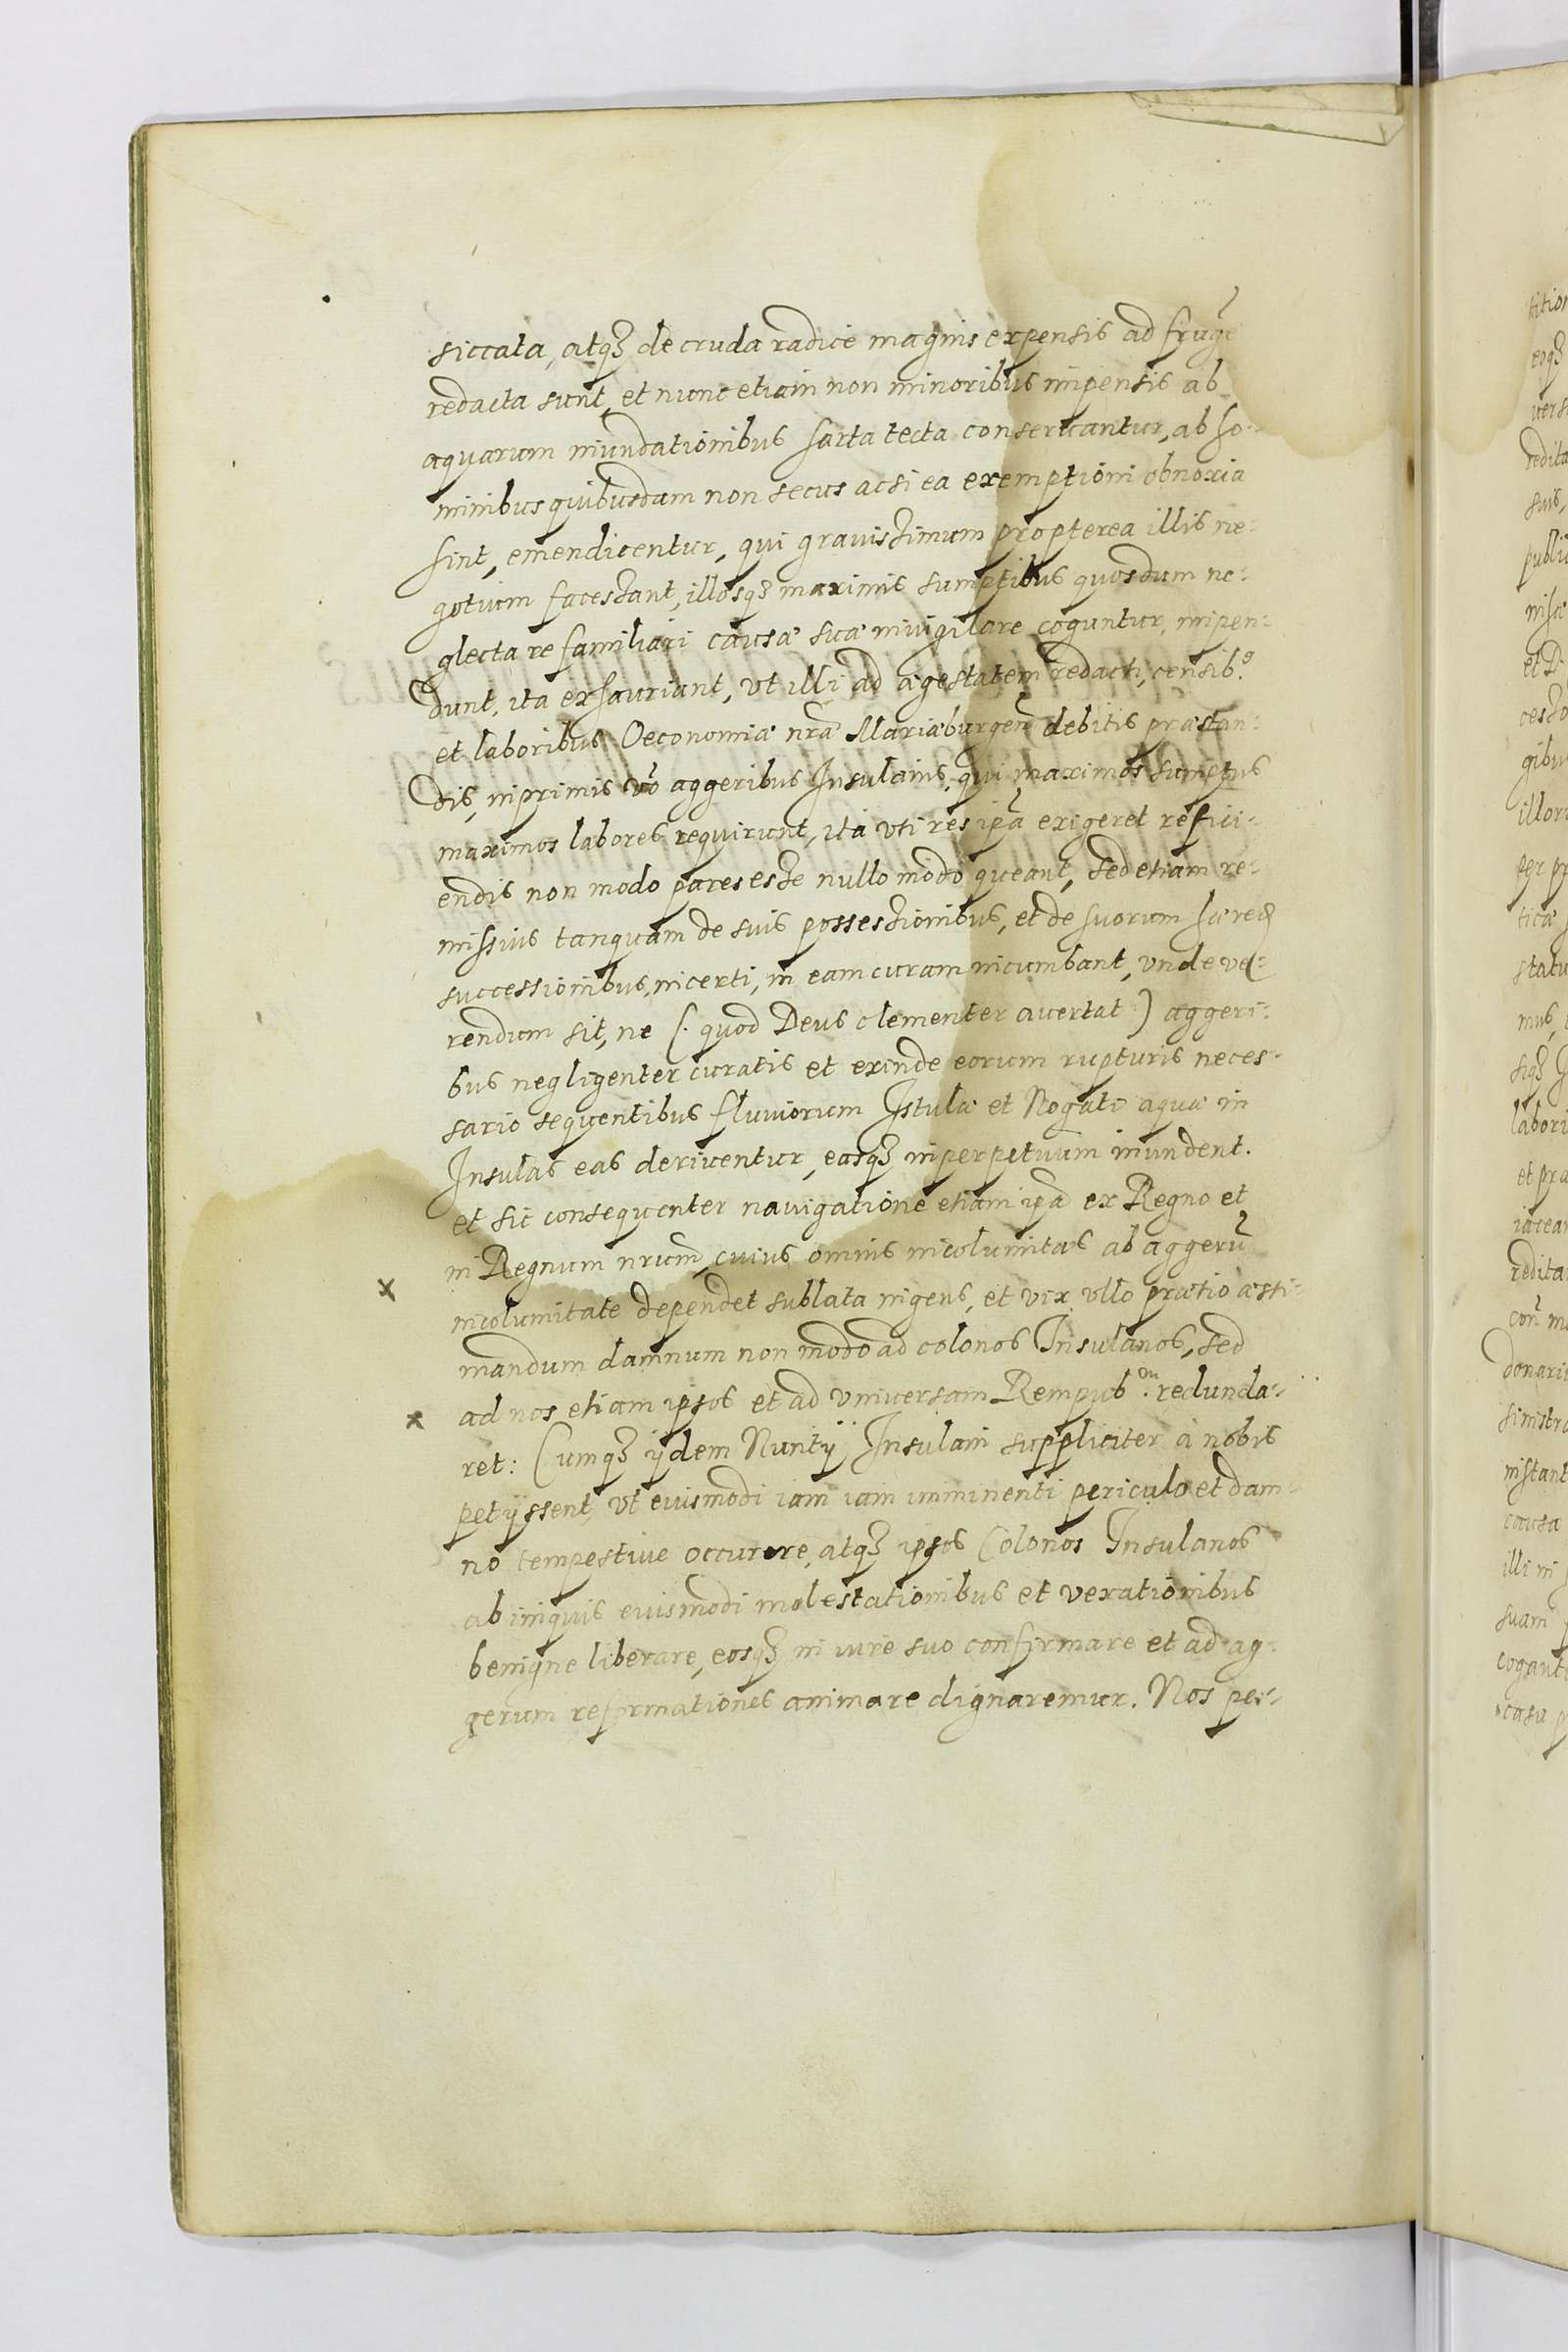 siccata, atqꝫ de cruda radice magnis expensis ad frugē
redacta sunt, et nunc etiam non minoribus impensis ab
aquarum inundationibus sarta tecta conseruantur, ab ho-
minibus quibusdam non secus ac si ea exemptioni obnoxia
sint, emendicentur, qui grauissimum propterea illis ne-
gotium facessant, illosqꝫ maximis sumptibus quos dum ne-
glecta re familiari causæ suæ inuigilare coguntur, impen-
dunt, ita exhauriant, vt illi ad ægestatem redacti, censib⁹
et laboribus Oeconomiæ nrae Mariæburgen̄ debitis præstan-
dis, inprimis vō aggeribus Insulanis, qui maximos sumptus
maximos labores requirunt, ita vti res ipa exigeret refici-
endis non modo pares esse nullo modo queant, sed etiam re-
missius tanquam de suis possessionibus, et de suorum hæred
successionibus, incerti, in eam curam incumbant, vnde ve-
rendum sit, ne (: quod Deus clementer auertat) aggeri-
bus negligenter curatis et exinde eorum rupturis neces-
sario sequentibus fluuiorum Istulæ et Nogati aquæ in
Insulas eas deriuentur, easqꝫ inperpetuum inundent.
et sic consequenter nauigatione etiam ipa ex Regno et
in Regnum nrum, cuius omnis incolumitas ab aggerū
x incolumitate dependet sublata ingens, et vix vllo prætio æsti-
mandum damnum non modo ad colonos Insulanos, sed
ad nos etiam ipsos et ad vniuersam Rempub.ᵐ redunda-
x ret: Cumqꝫ ijdem Nuntij Insulani suppliciter a nobis
petijssent, vt euismodi iam iam imminenti periculo et dam-
no tempestiue occurere, atqꝫ ipsos Colonos Insulanos
ab iniquis euismodi molestationibus et vexationibus
benigne liberare, eosqꝫ in iure suo confirmare et ad ag-
gerum reformationes animare dignaremur. Nos per-